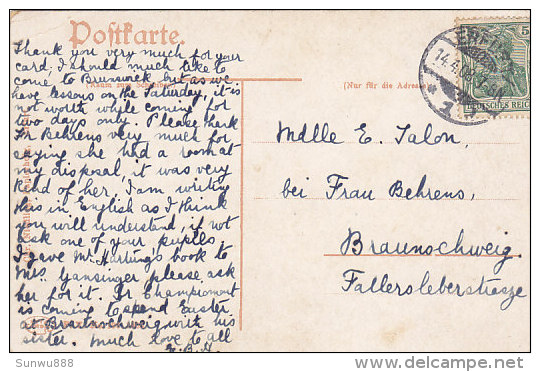 Postkarte.
Thank you very much for your
card, I should much like to
come to Brunswick but as we
have lessons on the Saturday, it is
not worth while coming for
two days only. Please thank
Fr Behrens very much for
saying she had a room at
my disposal, it was very
kind of her, I am writing
this in English as I think
you will understand, if not
ask one of your pupils.
I gave Mr Hartungs book to
Mrs. Gansinger please ask
her for it. Fr Championmont
is coming to spend Easter
at Braunschweig with his
sister. Much love to all
(Nur für die Adresse
ERFURT
14.4.08.
1
5
DEUTSCHES REICH
Mdlle E. Salon,
bei Frau Behrens,
Braunschweig.
Fallersleberstrasze
Sunwu888
delcampe.net